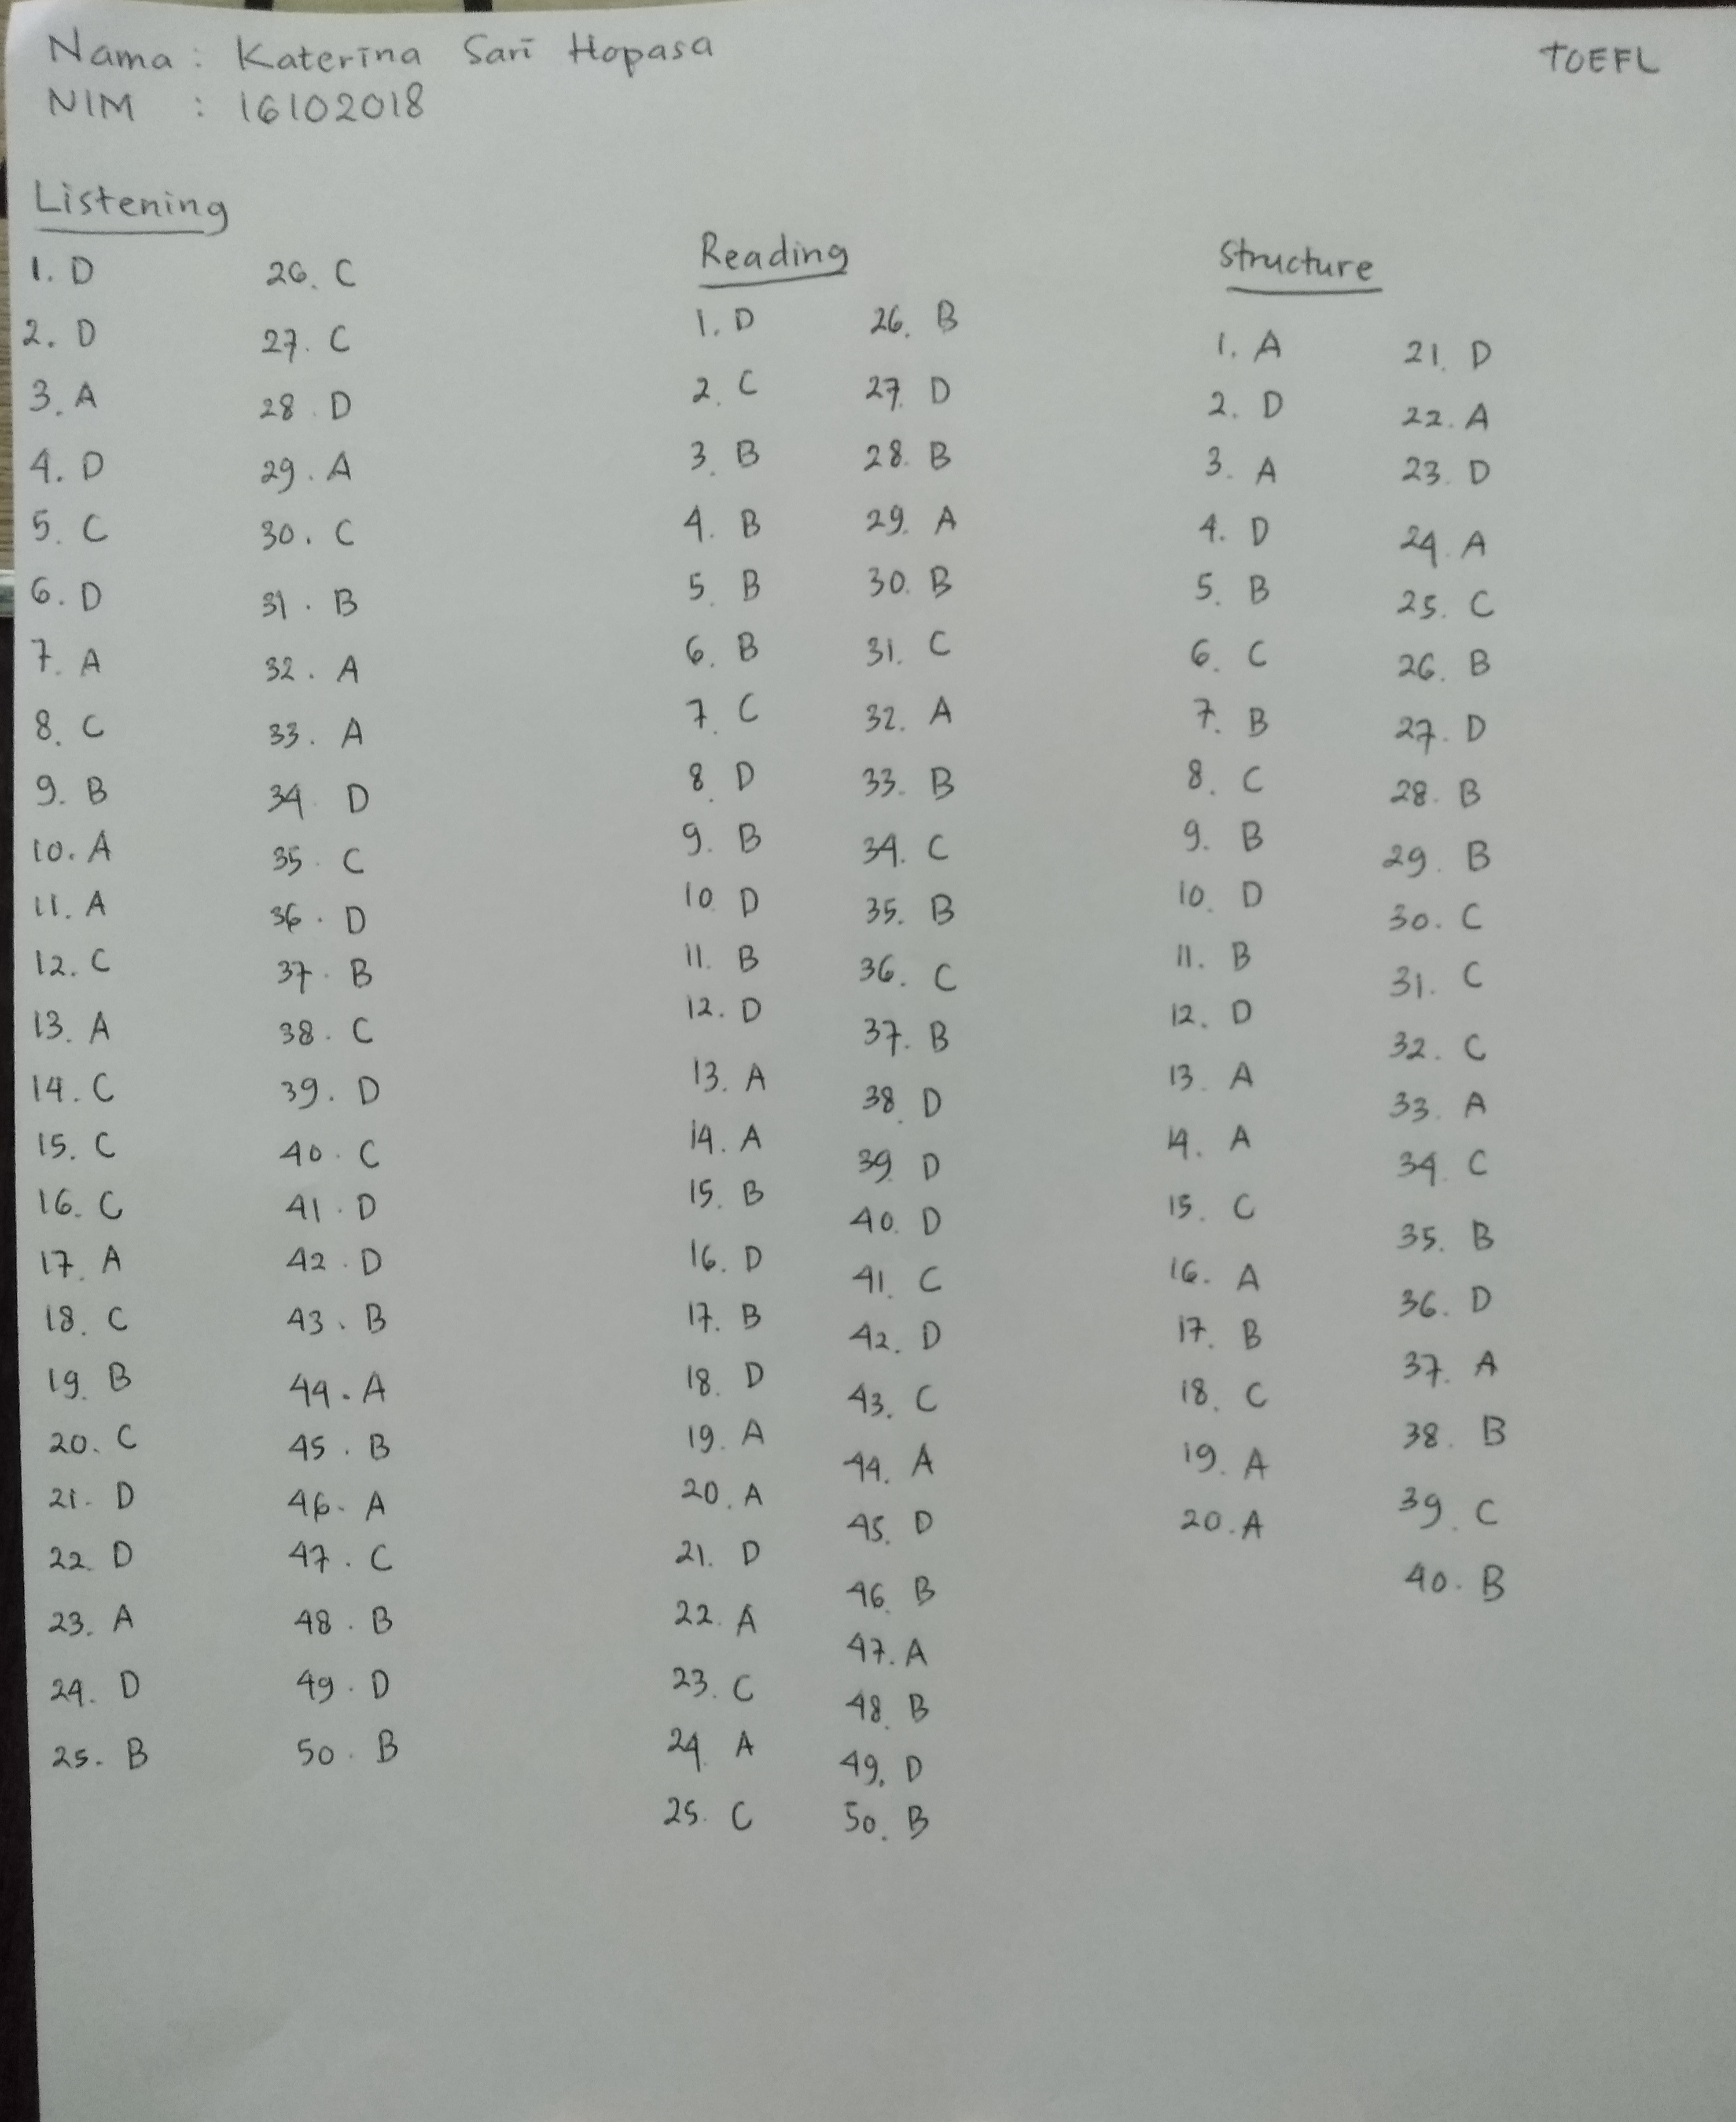 Nama : Katerina Sari Hopasa
NIM : 16102018
TOEFL
Listening
1. D
2. D
3. A
4. D
5. C
6. D
7. A
8. C
9. B
10. A
11. A
12. C
13. A
14. C
15. C
16. C
17. A
18. C
19. B
20. C
21. D
22. D
23. A
24. D
25. B
26. C
27. C
28. D
29. A
30. C
31. B
32. A
33. A
34. D
35. C
36. D
37. B
38. C
39. D
40. C
41. D
42. D
43. B
44. A
45. B
46. A
47. C
48. B
49. D
50. B
Reading
1. D
2. C
3. B
4. B
5. B
6. B
7. C
8. D
9. B
10. D
11. B
12. D
13. A
14. A
15. B
16. D
17. B
18. D
19. A
20. A
21. D
22. A
23. C
24. A
25. C
26. B
27. D
28. B
29. A
30. B
31. C
32. A
33. B
34. C
35. B
36. C
37. B
38. D
39. D
40. D
41. C
42. D
43. C
44. A
45. D
46. B
47. A
48. B
49. D
50. B
Structure
1. A
2. D
3. A
4. D
5. B
6. C
7. B
8. C
9. B
10. D
11. B
12. D
13. A
14. A
15. C
16. A
17. B
18. C
19. A
20. A
21. D
22. A
23. D
24. A
25. C
26. B
27. D
28. B
29. B
30. C
31. C
32. C
33. A
34. C
35. B
36. D
37. A
38. B
39. C
40. B